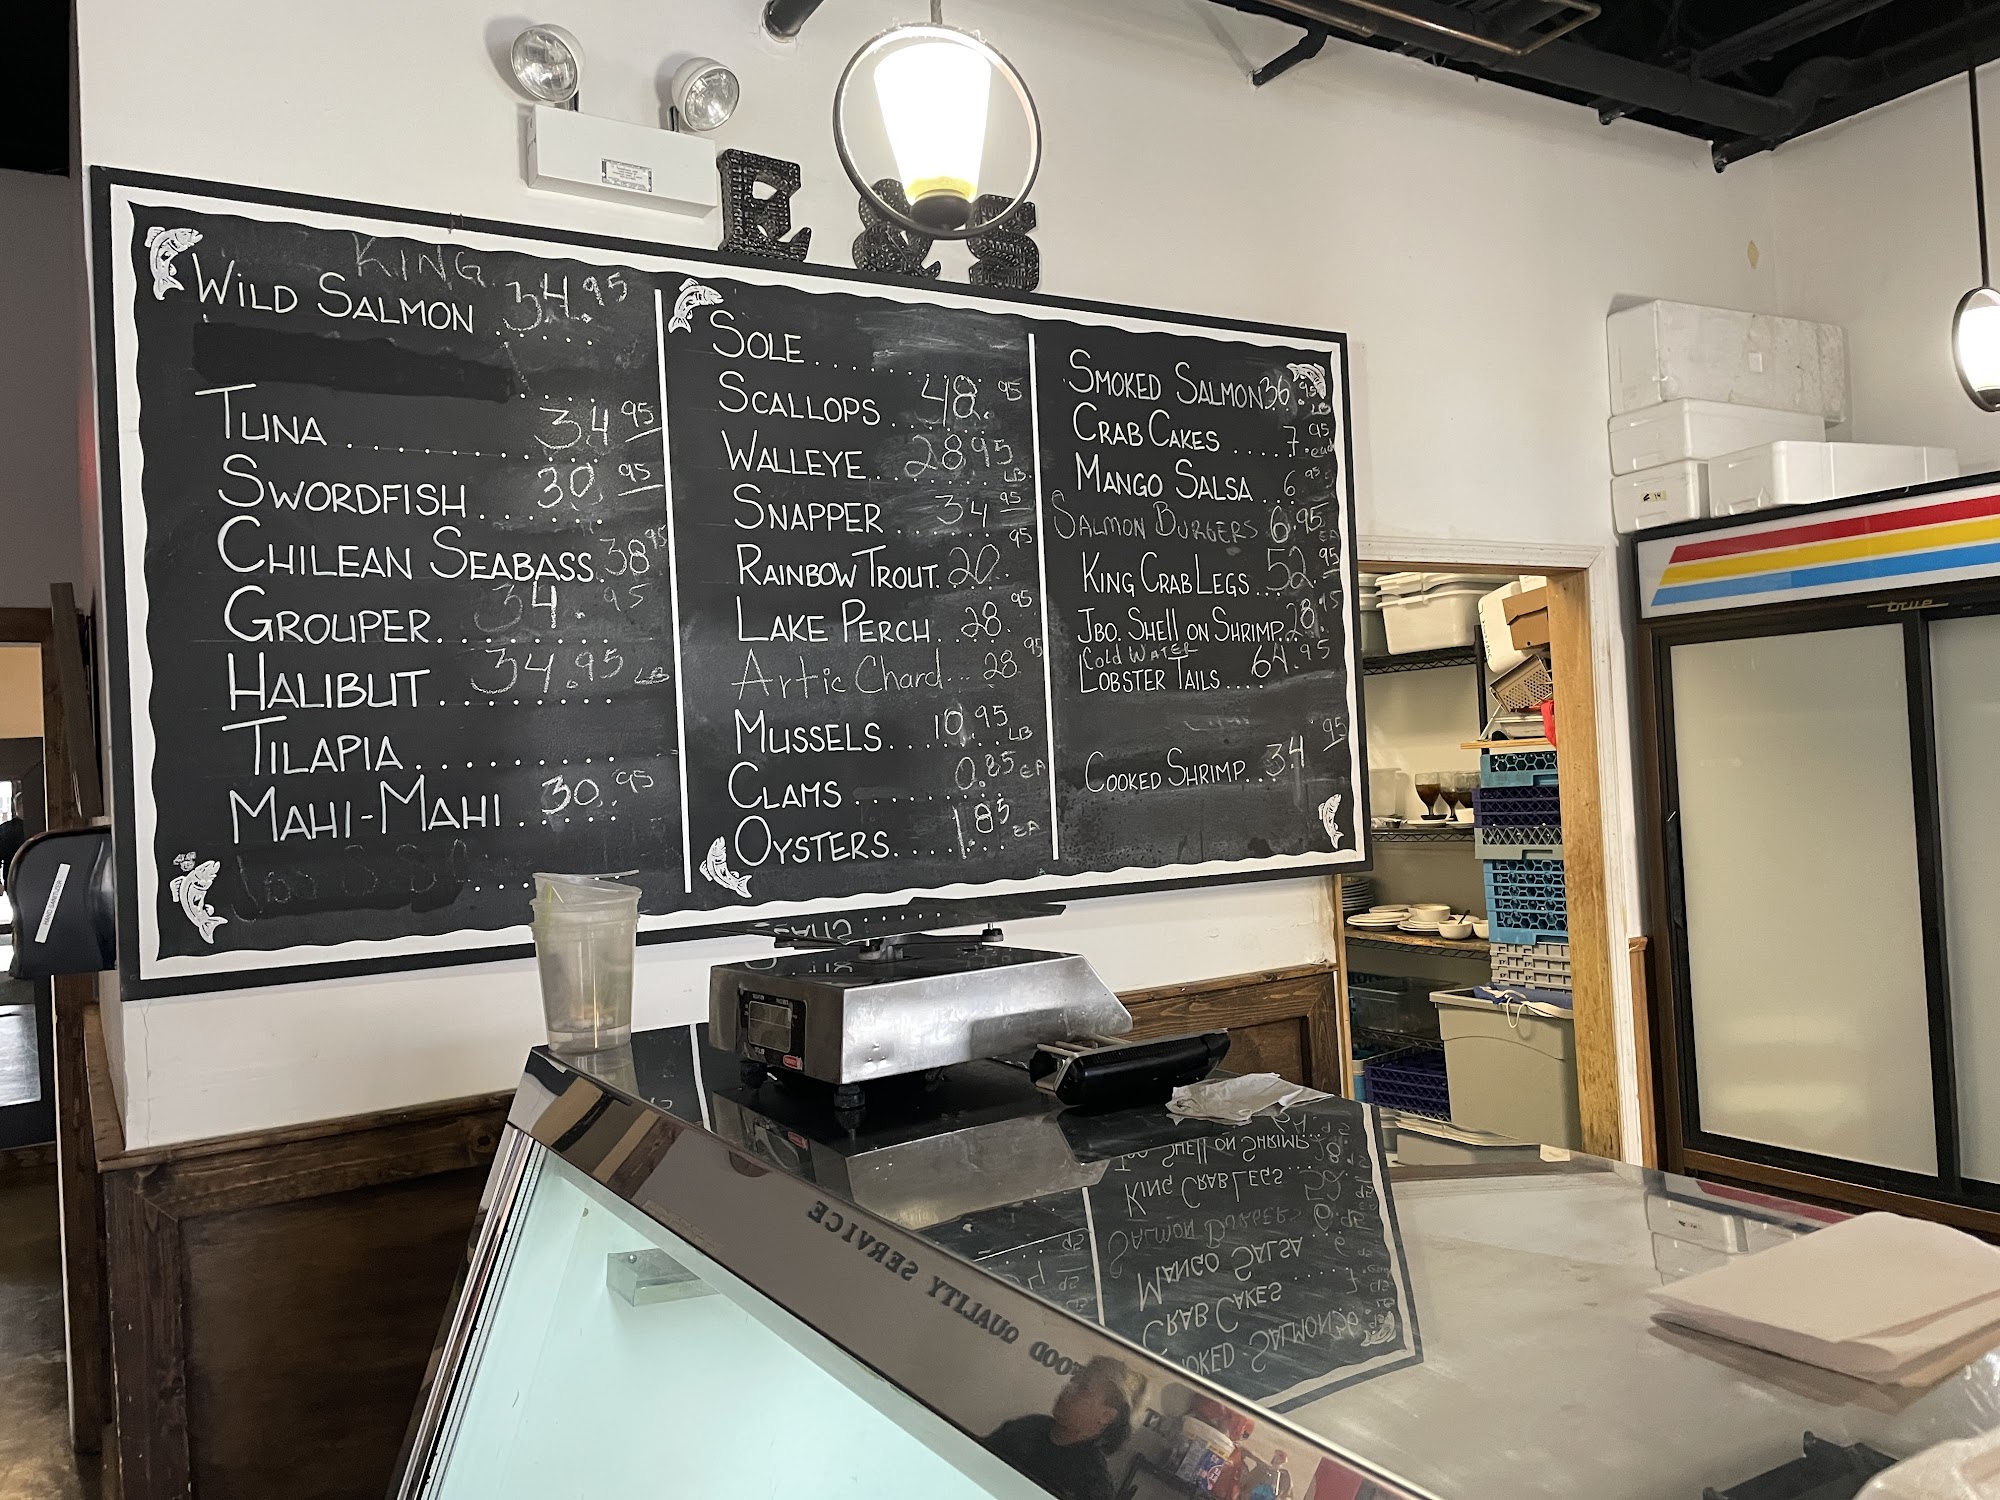 E & S
KING
WILD SALMON 34.95
TUNA ......... 34.95
SWORDFISH ...... 30.95
CHILEAN SEABASS. 38.95
GROUPER ........ 34.95
HALIBUT ......... 34.95 LB
TILAPIA .........
MAHI-MAHI ..... 30.95
SOLE ..........
SCALLOPS ...... 48.95
WALLEYE ....... 28.95 LB
SNAPPER ...... 34.95
RAINBOW TROUT. 20.95
LAKE PERCH ... 28.95
Artic Chard ... 28.95
MUSSELS ....... 10.95 LB
CLAMS ......... 0.85 EA
OYSTERS ....... 1.85 EA
SMOKED SALMON 36.95 LB
CRAB CAKES ..... 7.95 each
MANGO SALSA ... 6.95
SALMON BURGERS 6.95 EA
KING CRAB LEGS ... 52.95
JBO. SHELL ON SHRIMP.. 28.95
COLD WATER
LOBSTER TAILS .... 64.95
COOKED SHRIMP... 34.95
true
HAND SANITIZER
FOOD QUALITY SERVICE